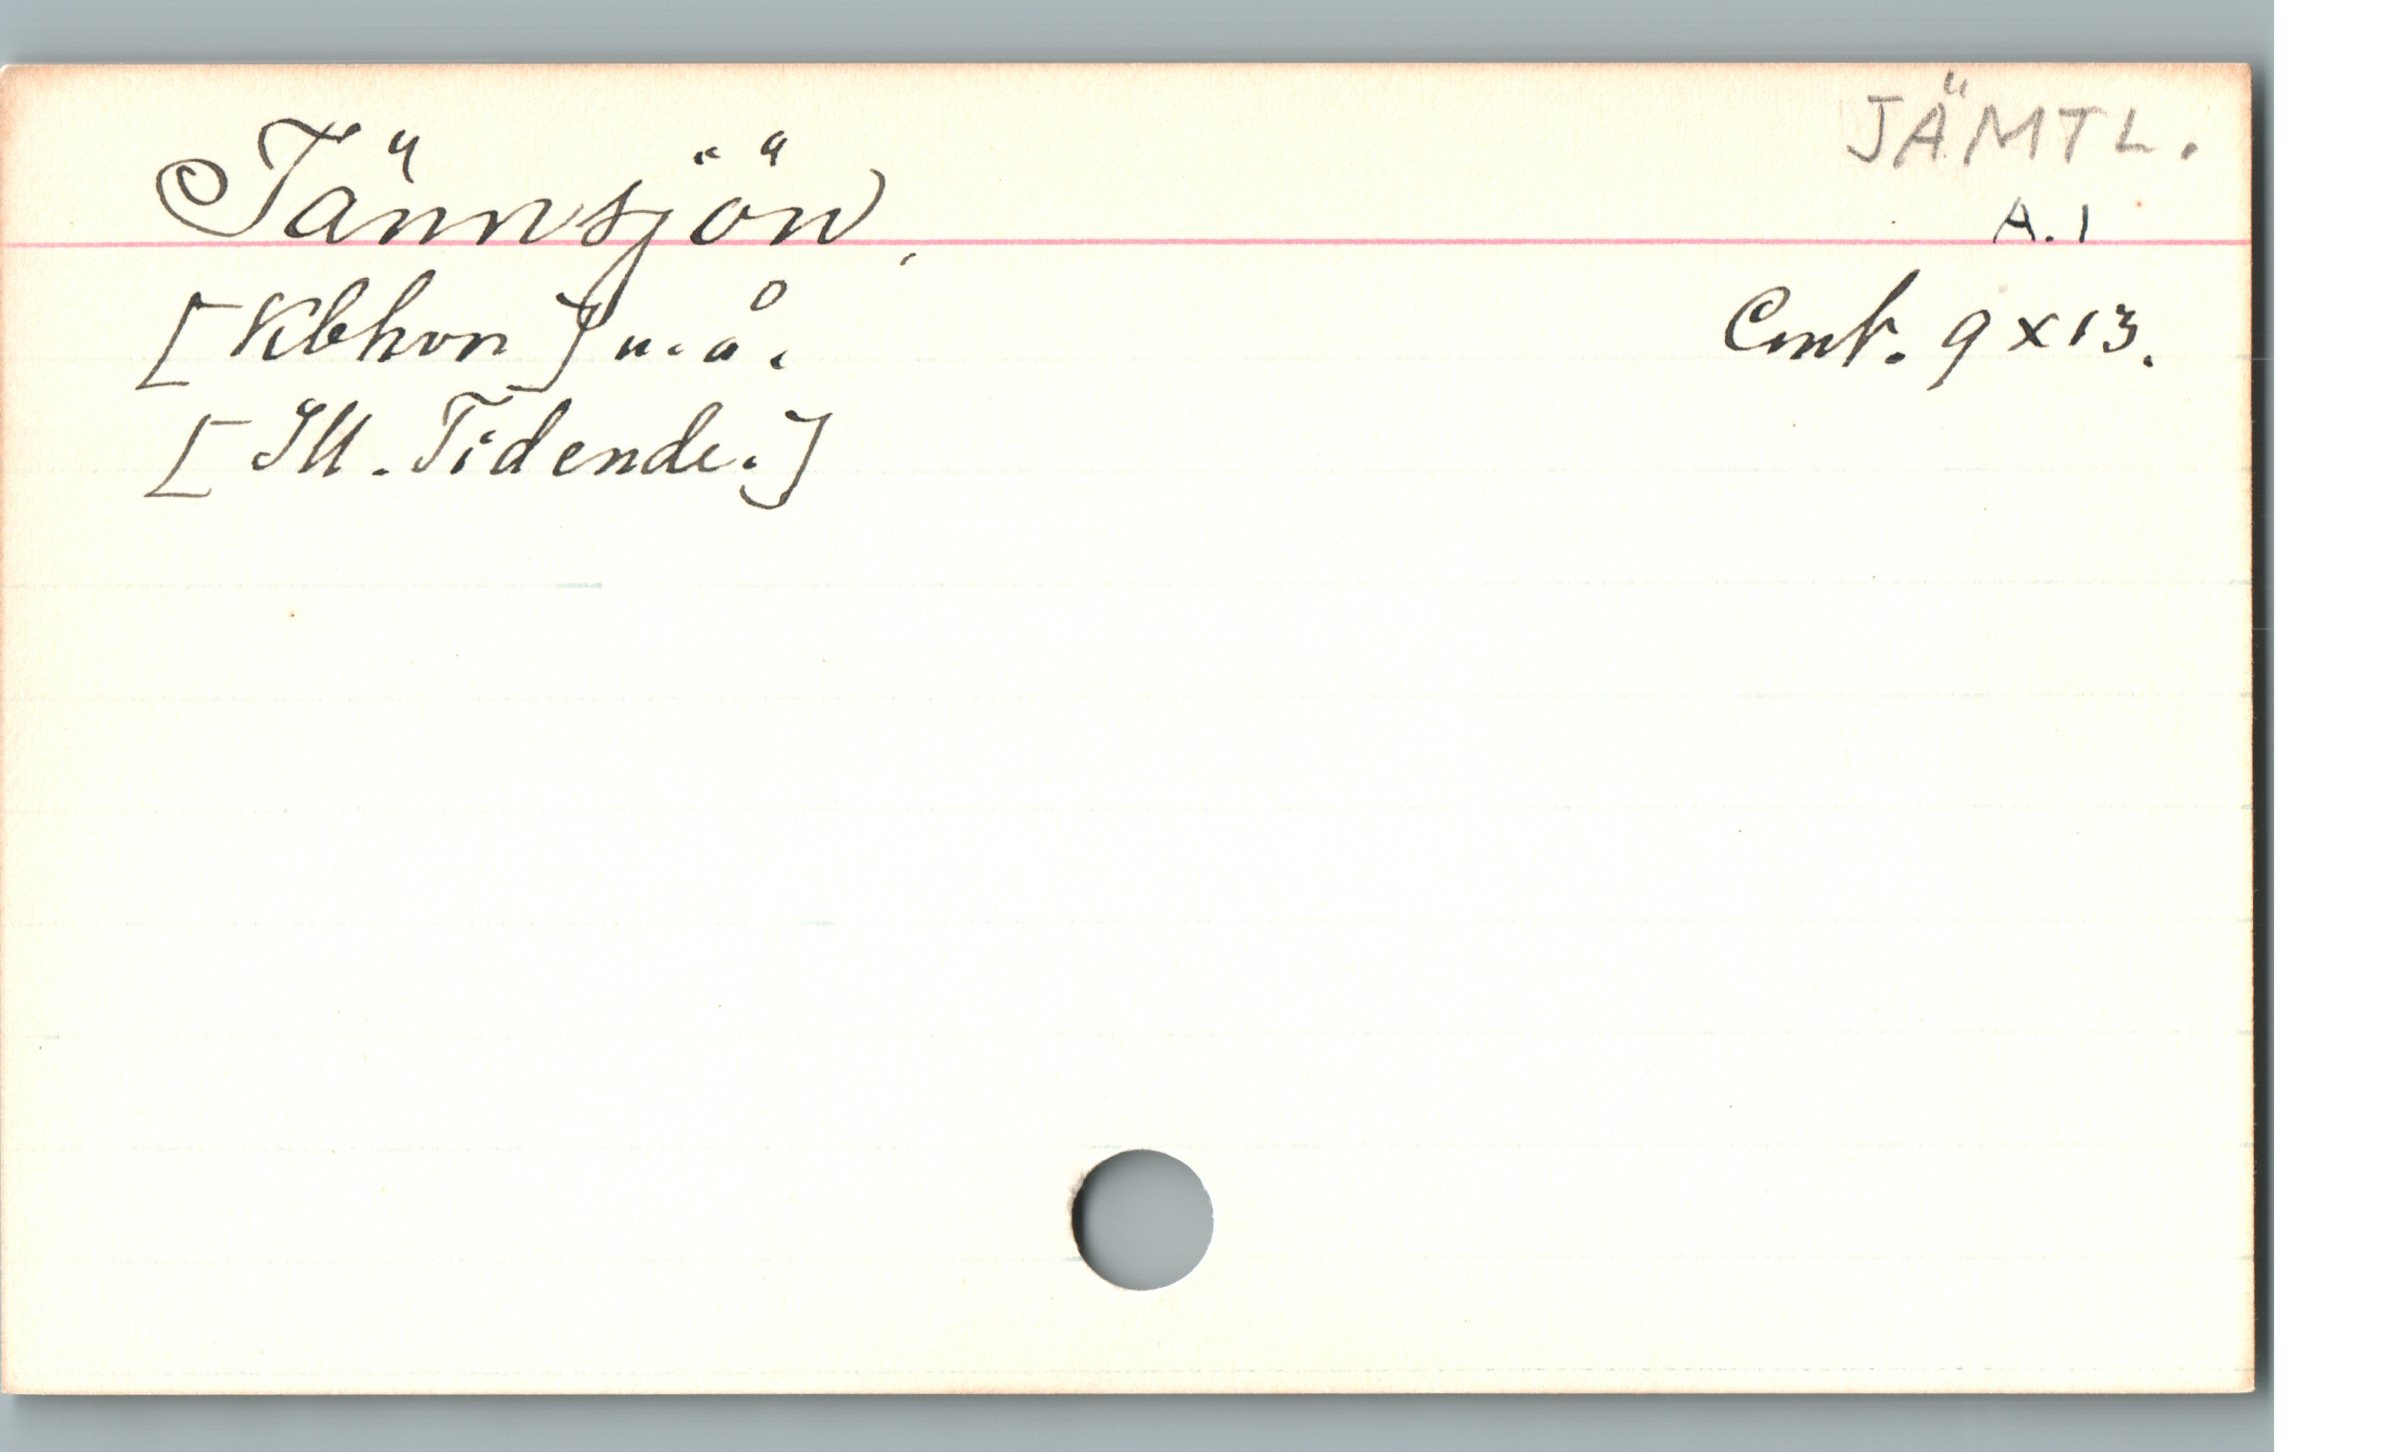 JÄMTL.
Tännsjön,
A.1
[Kbhvn] u. å.
Cmt. 9 x 13.
[Ill. Tidende.]